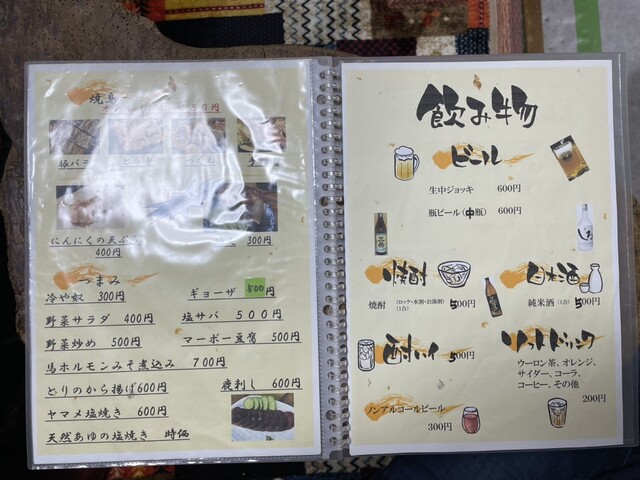 焼鳥
豚バラ
つくね
にんにくの天ぷら
400円
300円
つまみ
冷や奴 300円
ギョーザ 500円
野菜サラダ 400円
塩サバ 500円
野菜炒め 500円
マーボー豆腐 500円
馬ホルモンみそ煮込み 700円
とりのから揚げ600円
鹿刺し 600円
ヤマメ塩焼き 600円
天然あゆの塩焼き 時価
飲み物
ビール
生中ジョッキ 600円
瓶ビール(中瓶) 600円
焼酎
焼酎 (ロック・水割・お湯割) (1合) 500円
日本酒
純米酒 (1合) 500円
酎ハイ 500円
ソフトドリンク
ウーロン茶、オレンジ、
サイダー、コーラ、
コーヒー、その他
200円
ノンアルコールビール
300円